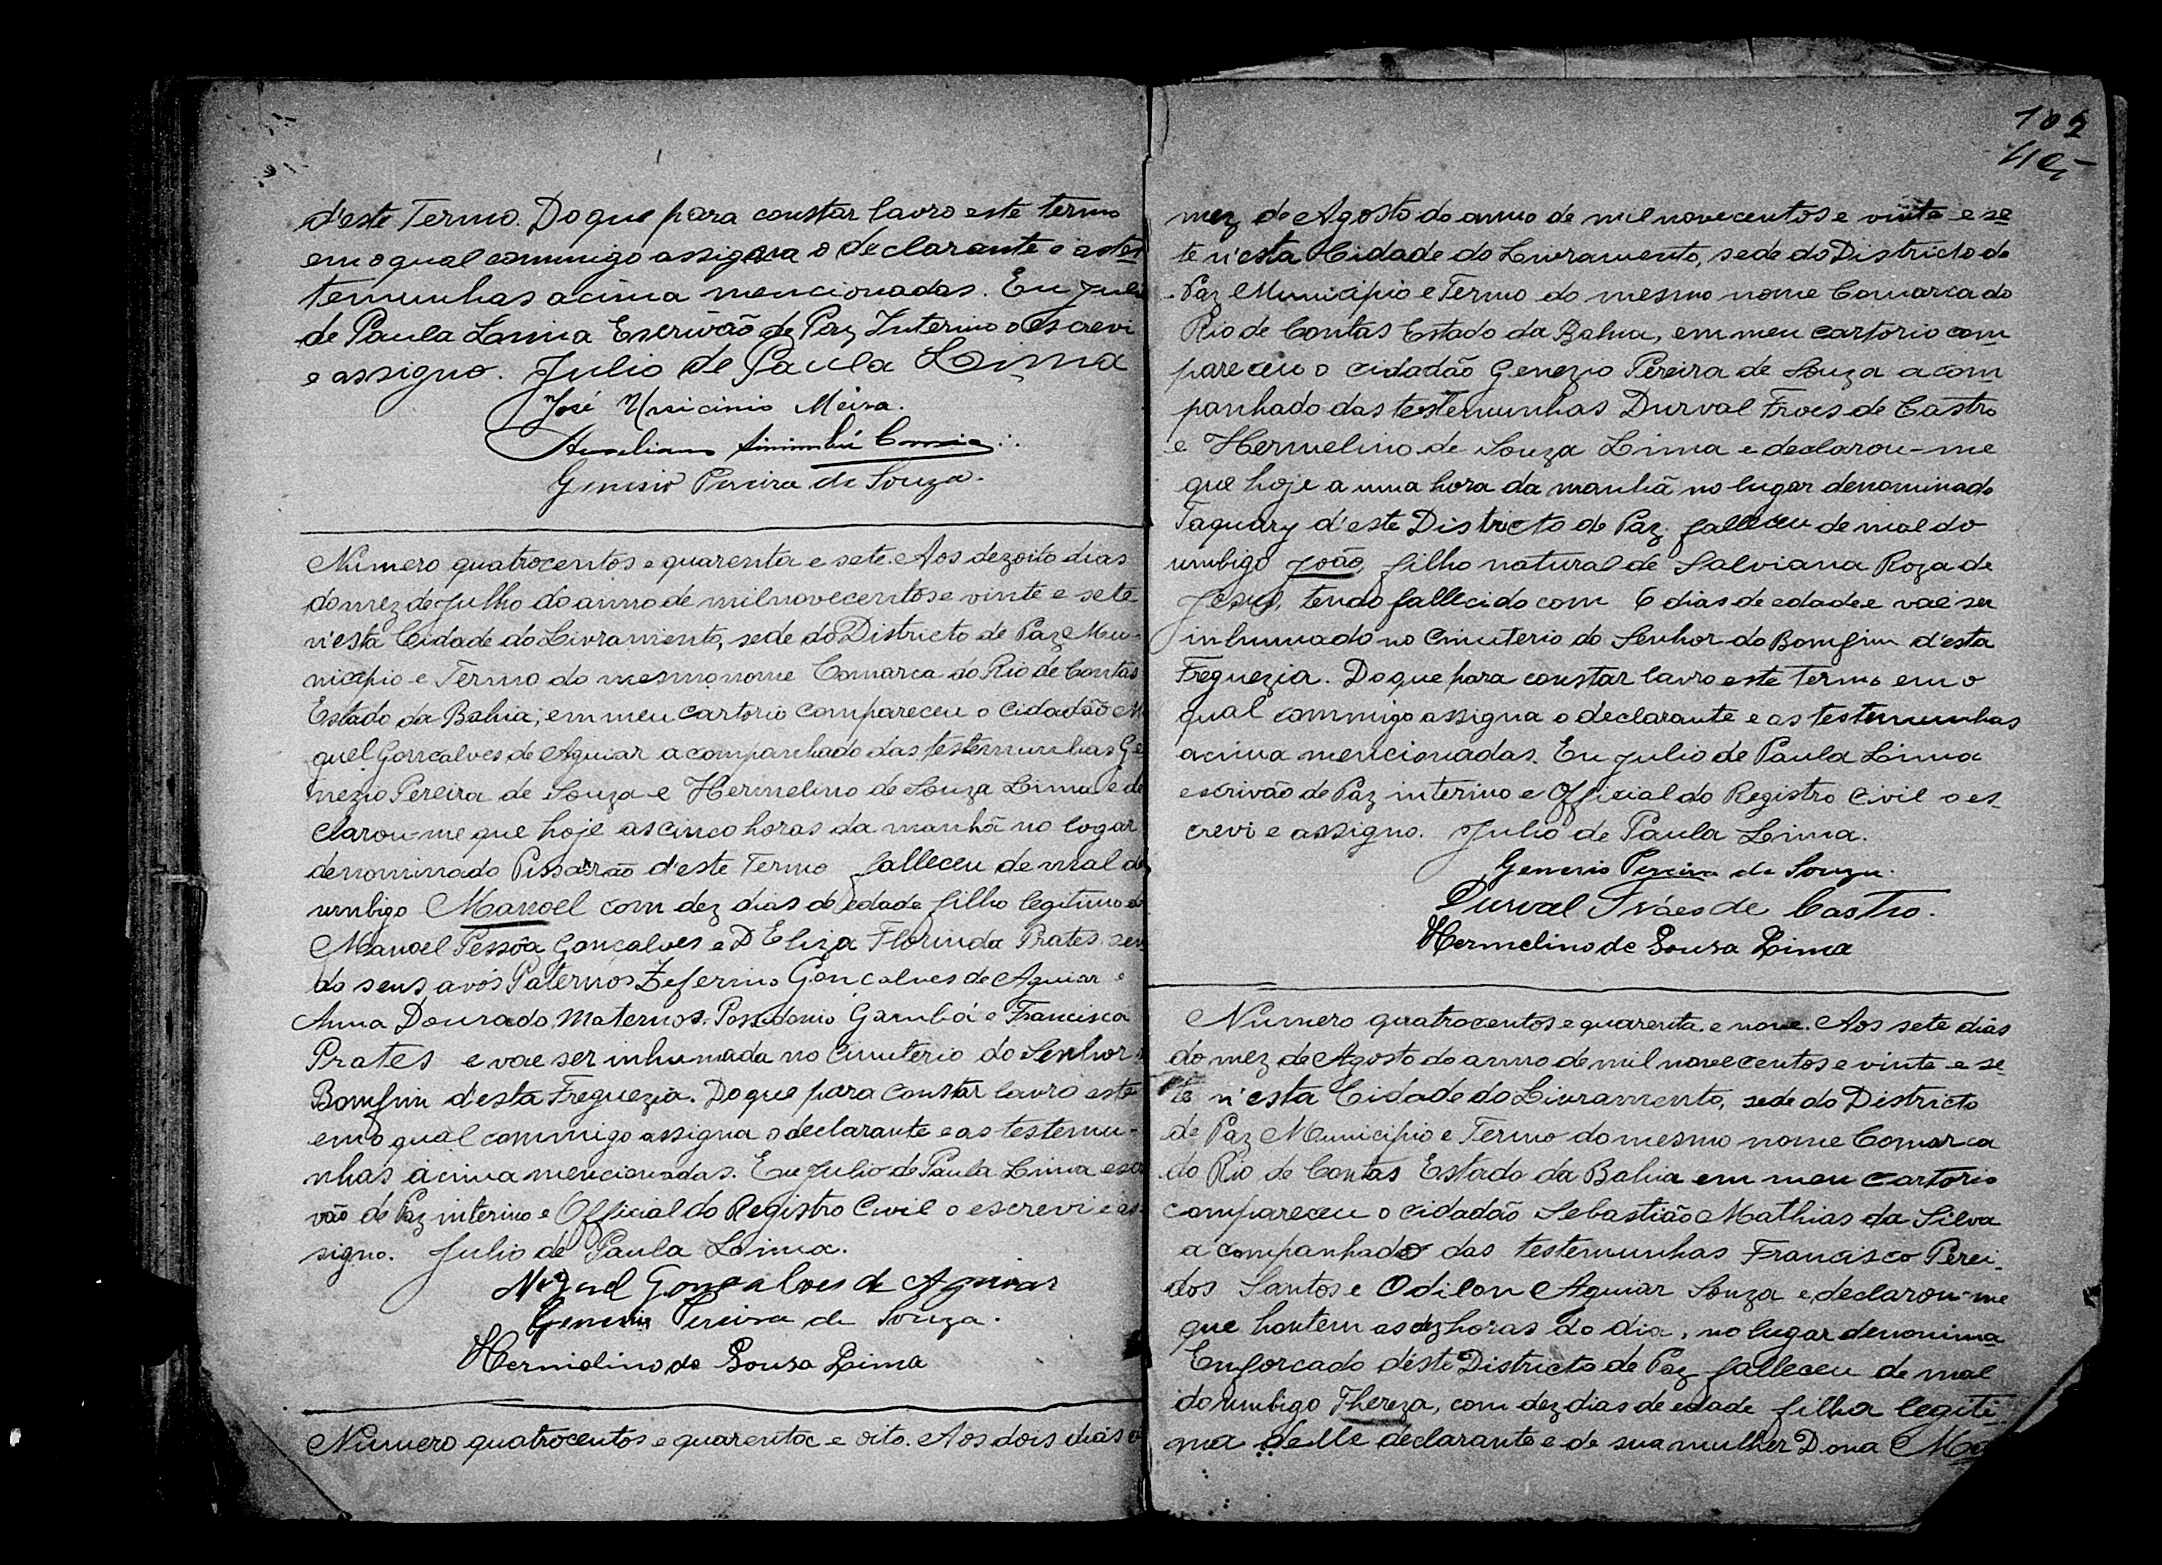 d'este Termo. Do que para constar lavro este termo
em o qual commigo assigna o declarante e as tes
temunhas acima mencionadas. Eu Julio
de Paula Lima Escrivão de Paz Interino o escrevi
e assigno. Julio de Paula Lima
José Ursicinio Meira.
Aureliano Sinimbú Correia
Genesio Pereira de Souza.
Numero quatrocentos e quarenta e sete. Aos dezoito dias
do mez de Julho do anno de mil novecentos e vinte e sete
n'esta Cidade do Livramento, sede do Districto de Paz Mu-
nicipio e Termo do mesmo nome Comarca do Rio de Contas
Estado da Bahia, em meu cartorio compareceu o cidadão Mi
guel Gonçalves de Aguiar acompanhado das testemunhas Ge
nezio Pereira de Souza e Hermelino de Souza Lima e de
clarou-me que hoje as cinco horas da manhã no logar
denominado Pissarrão d'este Termo falleceu de mal do
umbigo Manoel com dez dias de edade filho legitimo de
Manoel Pessôa Gonçalves e D Eliza Florinda Prates sen
do seus avós Paternos Zeferino Gonçalves de Aguiar e
Anna Dourado, Maternos Possidonio Gambá e Francisca
Prates e vae ser inhumada no cimiterio do Senhor
Bomfim d'esta Freguezia. Do que para constar lavro este
em o qual commigo assigna o declarante e as testemu-
nhas acima mencionadas. Eu Julio de Paula Lima escri
vão de Paz interino e Official do Registro Civil o escrevi e as
signo. Julio de Paula Lima.
Miguel Gonçalves de Aguiar
Genesio Pereira de Souza.
Hermelino de Sousa Lima
Numero quatrocentos e quarenta e oito. Aos dois dias
102
mez de Agosto do anno de mil novecentos e vinte e se
te n'esta Cidade do Livramento, sede do Districto de
Paz Municipio e Termo do mesmo nome Comarca do
Rio de Contas Estado da Bahia, em meu cartorio com
pareceu o cidadão Genezio Pereira de Souza acom
panhado das testemunhas Durval Froes de Castro
e Hermelino de Souza Lima e declarou-me
que hoje a uma hora da manhã no lugar denominado
Taquary d'este Districto de Paz falleceu de mal do
umbigo João, filho natural de Salviana Roza de
Jesus, tendo fallecido com 6 dias de edade e vae ser
inhumado no cimiterio do Senhor do Bomfim d'esta
Freguezia. Do que para constar lavro este termo em o
qual commigo assigna o declarante e as testemunhas
acima mencionadas. Eu Julio de Paula Lima
escrivão de Paz interino e Official do Registro Civil o es
crevi e assigno. Julio de Paula Lima.
Genesio Pereira de Souza.
Durval Fróes de Castro.
Hermelino de Sousa Lima
Numero quatrocentos e quarenta e nove. Aos sete dias
do mez de Agosto do anno de mil novecentos e vinte e se
te n'esta Cidade do Livramento, sede do Districto
de Paz Municipio e Termo do mesmo nome Comarca
do Rio de Contas Estado da Bahia em meu cartorio
compareceu o cidadão Sebastião Mathias da Silva
acompanhado das testemunhas Francisco Perei-
dos Santos e Odilon Aguiar Souza e declarou-me
que hontem as dez horas do dia, no lugar denomina
Enforcado d'este Districto de Paz falleceu de mal
do umbigo Thereza, com dez dias de edade filha legiti-
ma delle declarante e de sua mulher Dona